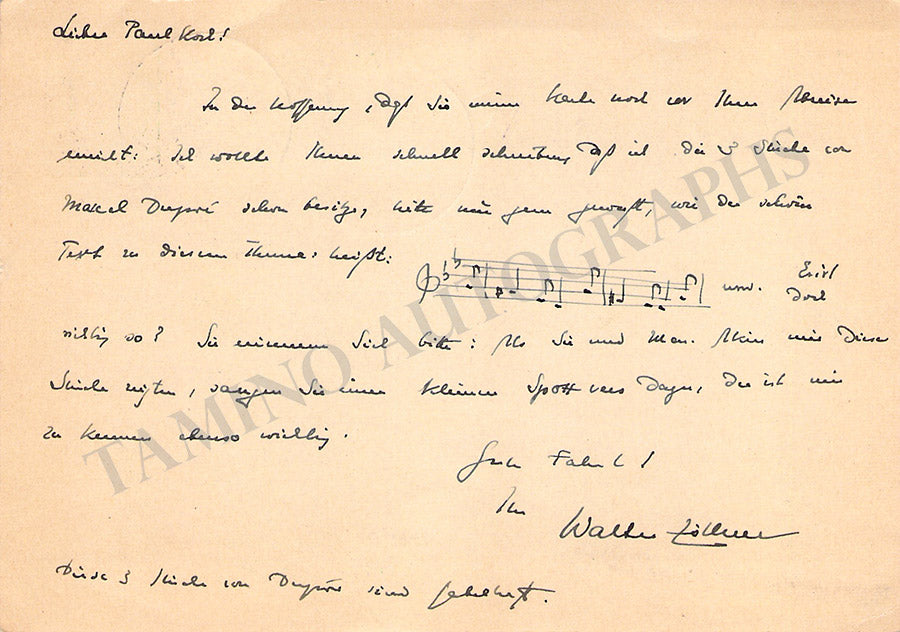 Lieber Paul Koch!
In der Hoffnung, daß Sie meine Karte noch vor Ihrer Abreise
erreicht: Ich wollte Ihnen schnell schreiben, daß ich die 3 Stücke von
Marcel Dupré schon besitze, hätte nur gern gewußt, wie der schöne
Text zu diesem Thema heißt:
usw. Es ist
doch
richtig so? Sie erinnern sich bitte: Als Sie und Mr. mir diese
Stücke zeigten, sangen Sie einen kleinen Spottvers dazu, der ist mir
zu kennen ebenso wichtig.
Gute Fahrt!
Ihr
Walter Zöllner
Diese 3 Stücke von Dupré sind fabelhaft.
TAMINO AUTOGRAPHS